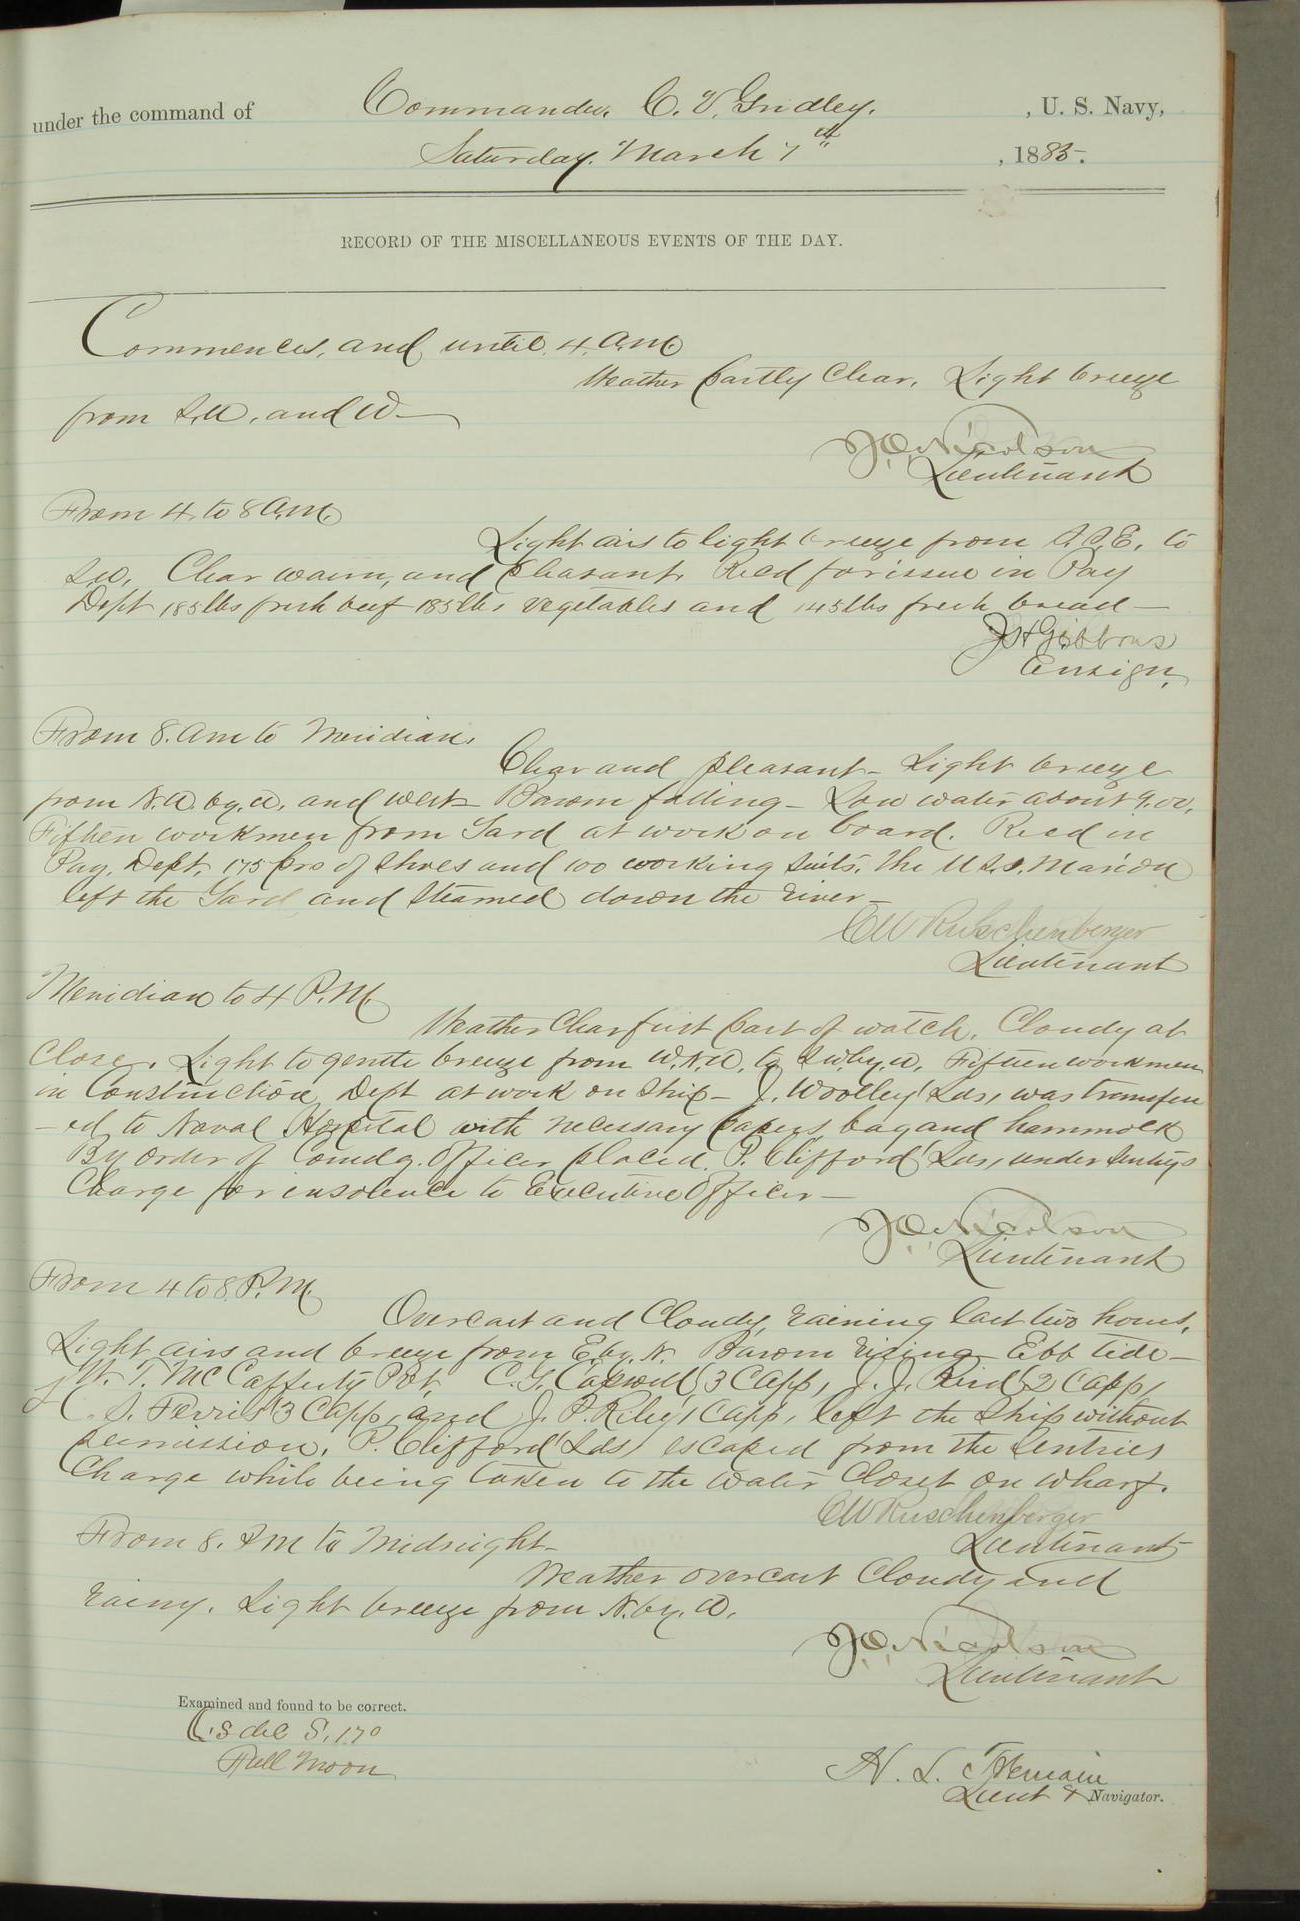 under the command of Commander C. V. Gridley. , U. S. Navy,
Saturday. March 7th , 1885.
RECORD OF THE MISCELLANEOUS EVENTS OF THE DAY.
Commences, and until 4 A.M.
Weather partly clear. Light breeze
from S.W. and W—
J.O. Nicolson
Lieutenant
From 4 to 8 A.M.
Light airs to light breeze from S.S.E. to
S.W. Clear warm, and pleasant. Recd for issue in Pay
Dept 185 lbs fresh beef 185 lbs vegetables and 145 lbs fresh bread—
J H Gibbons
Ensign.
From 8. am to Meridian.
Clear and pleasant— Light breeze
from N.W. by. W. and West— Barom falling— Low water about 9.00.
Fifteen workmen from Yard at work on board. Recd in
Pay. Dept. 175 prs of shoes and 100 working suits. The U.S.S. Marion
left the Yard and steamed down the river—
C W Ruschenberger
Lieutenant
Meridian to 4 P.M.
Weather Clear first part of watch. Cloudy at
close. Light to gentle breeze from W.N.W. to S.W. by. W. Fifteen workmen
in Construction Dept at work on ship— J. Woolley (Lds) was transferr
—ed to Naval Hospital with necessary papers bag and hammock
By order of Comdg. Officer placed P. Clifford (Lds) under Sentry's
Charge for insolence to Executive Officer—
J.O. Nicolson
Lieutenant
From 4 to 8 P.M.
Overcast and Cloudy, raining last two hours.
Light airs and breeze from E. by. N. Barom rising— Ebb tide—
W. T. McCafferty C. G. Caswell (3 Capp) J. J. Reid (2 Capp)
S. Ferris (3 Capp) and J. P. Riley (1 Capp) left the ship without
permission. P. Clifford (Lds) escaped from the Sentries
Charge while being taken to the water closet on wharf.
C W Ruschenberger
Lieutenant
From 8. PM to Midnight—
Weather overcast Cloudy and
rainy. Light breeze from N. by. W.
J.O. Nicolson
Lieutenant
Examined and found to be correct.
S. 170
Full Moon
H. L. Tremain
Lieut & Navigator.